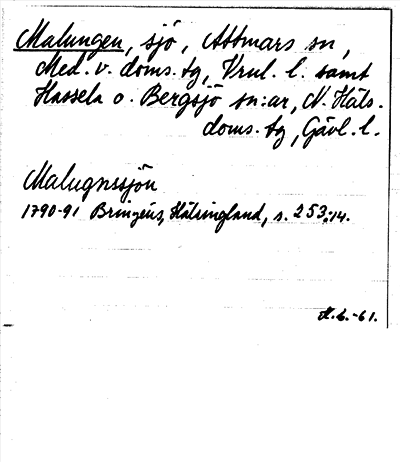 Malungen, sjö, Attmars sn,
Med. v. doms. tg, Vnl. l. samt
Hassela o. Bergsjö sn:ar, N. Häls.
doms. tg, Gävl. l.
Malugnssjön
1790-91 Bringéus, Hälsingland, s. 253:14.
-61.